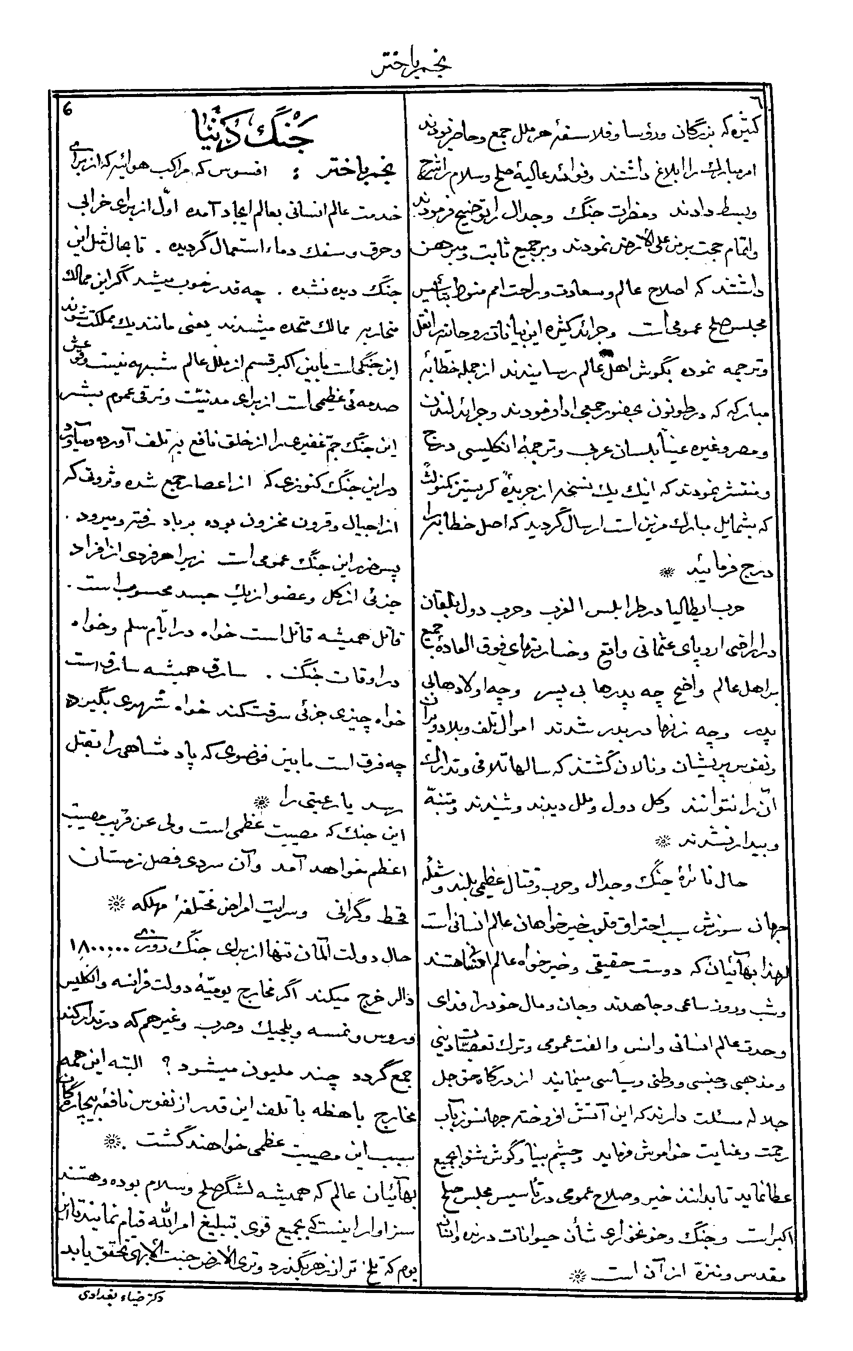 نجم باختر
٦
کثیره که بزرگان ورؤسا وفلاسفهٔ هر ملل جمع وحاضر بودند
امر مبارک را ابلاغ داشتند وفوائد عالیهٔ صلح وسلام را شرح
وبسط دادند ومضرات جنگ وجدال را توضیح فرمودند
واتمام حجت بر من علی الأرض نمودند وبر جمیع ثابت ومبرهن
داشتند که اصلاح عالم وسعادت وراحت امم منوط بتأسیس
مجلس صلح عمومی است وجرائد کثیره این بیانات روحانیه را نقل
وترجمه نموده بگوش اهل عالم رسانیدند از جمله خطابهٔ
مبارکه که در طونون بحضور جمعی ادا فرمودند وجرائد لندن
ومصر وغیره عیناً بلسان عربی وترجمهٔ انکلیسی درج
ومنتشر نمودند که اینک یک نسخه از جریدهٔ کریستین کنولث
که بشمایل مبارک مزین است ارسال گردید که اصل خطابه را
درج فرمائید
حرب ایطالیا در طرابلس الغرب وحرب دول بلقان
در اراضی اروپای عثمانی واقع وخسارتهای فوق العاده بجمیع
اهل عالم واضح چه پدرها بی پسر وچه اولادهائی بی
پدر وچه زنها دربدر شدند اموال تلف وبلاد ویران
ونفوس پریشان ونالان گشتند که سالها تلافی وتدارک
آن را نتوانند وکل دول وملل دیدند وشنیدند ومتنبه
وبیدار نشدند
حال نائرهٔ جنگ وجدال وحرب وقتال عظیمی بلند وشعلهٔ
جهان سوزش سبب احتراق قلوب خیرخواهان عالم انسانی است
لهذا بهائیان که دوست حقیقی وخیرخواه عالم انسانی هستند
وشب وروز ساعی وجاهدند وجان ومال خود را فدای
وحدت عالم انسانی وانس والفت عمومی وترک تعصبات دینی
ومذهبی وجنسی ووطنی وسیاسی مینمایند از درگاه حق جل
جلاله مسئلت دارند که این آتش افروخته جهانسوز بآب
رحمت وعنایت خواموش فرماید وچشم بینا وگوش شنوا بجمیع
عطا نماید تا بدانند خیر وصلاح عمومی در تأسیس مجلس صلح
اکبر است وجنگ وخونخواری شأن حیوانات درنده وانسان
مقدس ومنزه از آن است
6
جنگ دنیا
نجم باختر : افسوس که مراکب هوائیه که از برای
خدمت عالم انسانی بعالم ایجاد آمده اول از برای خرابی
وحرق وسفک دماء استعمال گردیده . تا بحال مثل این
جنگ دیده نشده . چه قدر خوب میشد اگر این ممالک
متحاربه ممالک متحده میشدند یعنی مانند یک مملکت
این جنگی است مابین اکبر قسم از ملل عالم شبهه نیست
صدمه‌ئی عظمی است از برای مدنیت وترقی عموم بشر
این جنگ جم غفیری را از خلق نافع به تلف آورده ومیآورد
در این جنگ کنوزی که از اعصار جمع شده وثروتی که
از اجیال وقرون مخزون بوده بر باد رفته ومیرود .
پس ضرر این جنگ عمومی است زیرا هر فردی از افراد
جزئی از کل وعضو از یک جسد محسوب است .
قاتل همیشه قاتل است خواه در ایام سلم وخواه
در اوقات جنگ . سارق همیشه سارق است
خواه چیزی جزئی سرقت کند خواه شهری بگیرد
چه فرق است مابین فوضوی که پادشاهی را بقتل
رسد یا رعیتی را
این جنگ که مصیبت عظمی است ولی عن قریب مصیبت
اعظم خواهد آمد وآن سردی فصل زمستان
قحط وگرانی وسرایت امراض مختلفهٔ مهلکه
حال دولت آلمان تنها از برای جنگ روزی ١٨٠٠٠٠٠٠
دالر خرج میکند اگر مخارج یومیهٔ دولت فرانسه وانکلیس
وروس ونمسه وبلجیک وحرب وغیرهم که در تدارکند
جمع گردد چند ملیون میشود ؟ البته این همه
مخارج باهظه با تلف این قدر از نفوس نافعه بیچارگان
سبب این مصیبت عظمی خواهند گشت .
بهائیان عالم که همیشه لشگر صلح وسلام بوده وهستند
سزاوار اینست که بجمیع قوی بتبلیغ امرالله قیام نمایند تا این
یوم که تلخ تر از زهر بگذرد وتری الارض جنت الأبهی تحقق یابد
دکتر ضیاء بغدادی